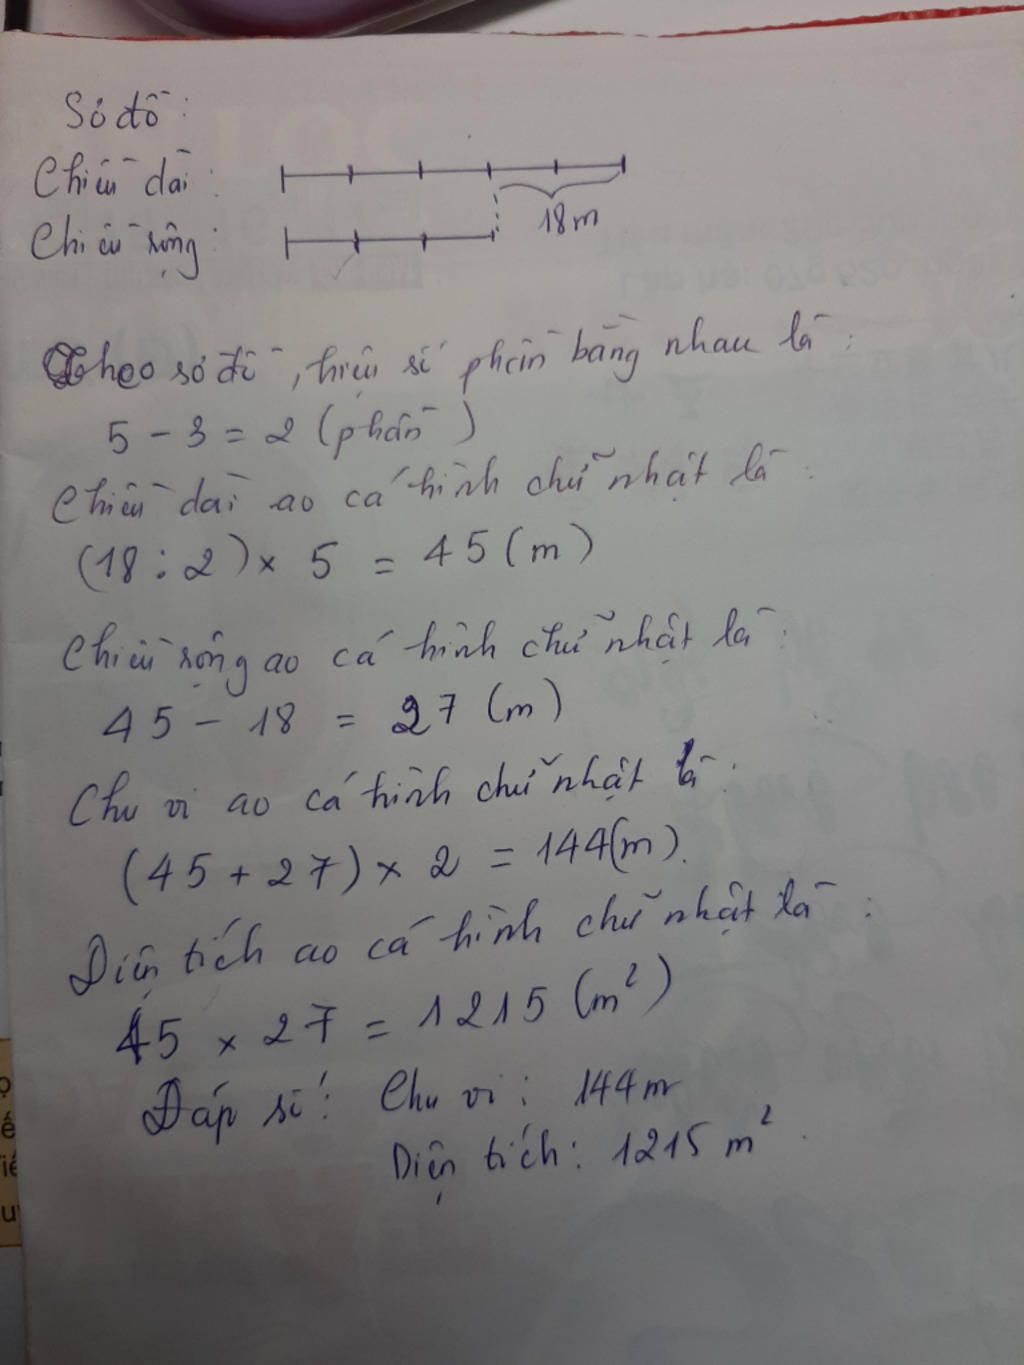 Sơ đồ:
Chiều dài:
18m
Chiều rộng:
Theo sơ đồ, hiệu số phần bằng nhau là:
5 - 3 = 2 (phần)
Chiều dài ao cá hình chữ nhật là:
(18 : 2) × 5 = 45 (m)
Chiều rộng ao cá hình chữ nhật là:
45 - 18 = 27 (m)
Chu vi ao cá hình chữ nhật là:
(45 + 27) × 2 = 144 (m).
Diện tích ao cá hình chữ nhật là:
45 × 27 = 1215 (m²)
Đáp số: Chu vi: 144m
Diện tích: 1215 m².